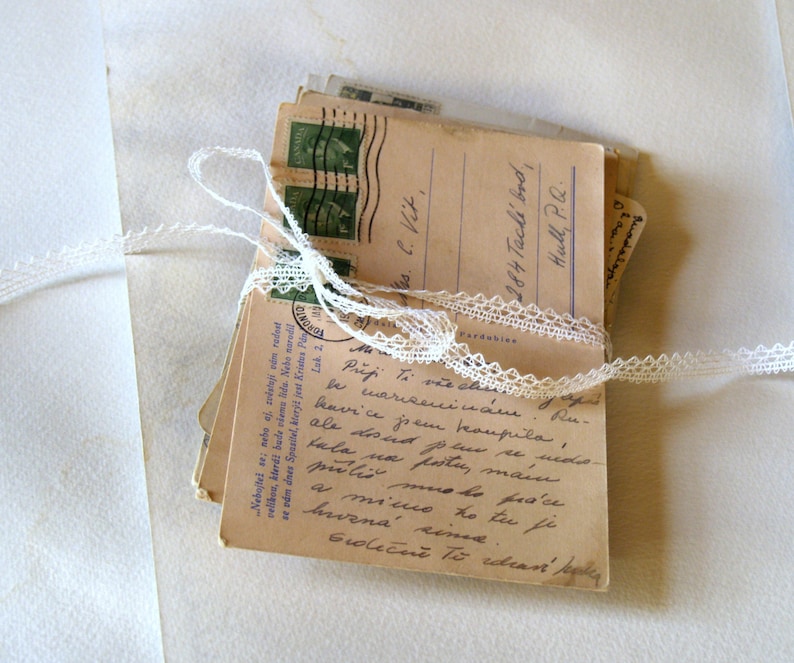 CANADA
Mrs. C. Vít,
284 Taché bvd,
Hull, P.Q.
TORONTO
JAN
Pardubice
„Nebojtež se; nebo aj, zvěstuji vám radost
velikou, kteráž bude všemu lidu. Nebo narodil
se vám dnes Spasitel, kterýž jest Kristus Pán
Luk. 2,
Přeji Ti všechno
k narozeninám. Ru-
kavice jsem koupila,
ale dosud jsem se nedo-
stala na poštu, mám
příliš mnoho práce
a mimo to tu je
hrozná zima.
Srdečně Tě zdraví